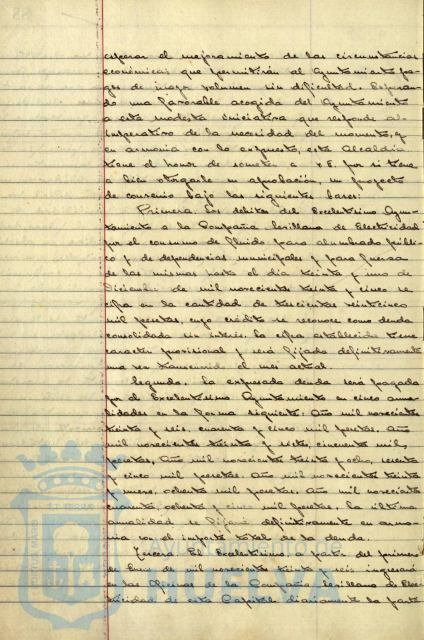 esperar el mejoramiento de las circunstancias
económicas que permitirán al Ayuntamiento pa-
gos de mayor volumen sin dificultad. Esperan-
do una favorable acogida del Ayuntamiento
a esta modesta iniciativa que responde al
imperativo de la necesidad del momento, y
en armonía con lo expuesto, esta Alcaldía
tiene el honor de someter a V.E. por si tiene
a bien otorgarle su aprobación, un proyecto
de convenio bajo las siguientes bases:
Primera. Los débitos del Excelentísimo Ayun-
tamiento a la Compañía Sevillana de Electricidad
por el consumo de fluido para alumbrado públi-
co y de dependencias municipales y para fuerza
de las mismas hasta el día treinta y uno de
Diciembre de mil novecientos treinta y cinco se
cifra en la cantidad de trescientas veinticinco
mil pesetas, cuyo crédito se reconoce como deuda
consolidada sin interés. La cifra establecida tiene
carácter provisional y será fijada definitivamente
una vez transcurrido el mes actual.
Segunda. La expresada deuda será pagada
por el Excelentísimo Ayuntamiento en cinco anua-
lidades en la forma siguiente: Año mil novecientos
treinta y seis, cuarenta y cinco mil pesetas. Año
mil novecientos treinta y siete, cincuenta mil
pesetas. Año mil novecientos treinta y ocho, sesenta
y cinco mil pesetas. Año mil novecientos treinta
y nueve, ochenta mil pesetas. Año mil novecientos
cuarenta, ochenta y cinco mil pesetas. La última
anualidad se fijará definitivamente en armo-
nía con el importe total de la deuda.
Tercera. El Excelentísimo a partir del primero
de Enero de mil novecientos treinta y seis ingresará
en las Oficinas de la Compañía Sevillana de Elec-
tricidad de esta Capital diariamente la parte